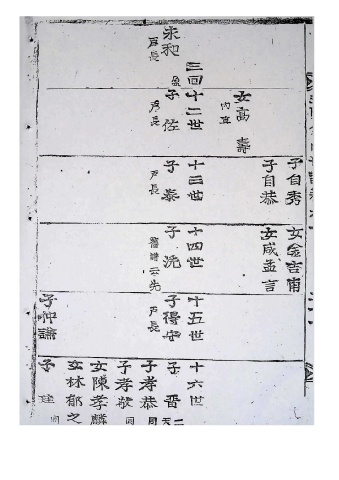 女高 壽
三回
永和
戶長
十二世
子 佐
戶長
子自秀
子自恭
十三世
子 泰
戶長
女金吉甫
女咸孟言
十四世
子 洗
舊譜云先
十五世
子得守
戶長
十六世
子 晋
子孝恭
同
子孝敬
同
女陳孝麟
女林郁之
子